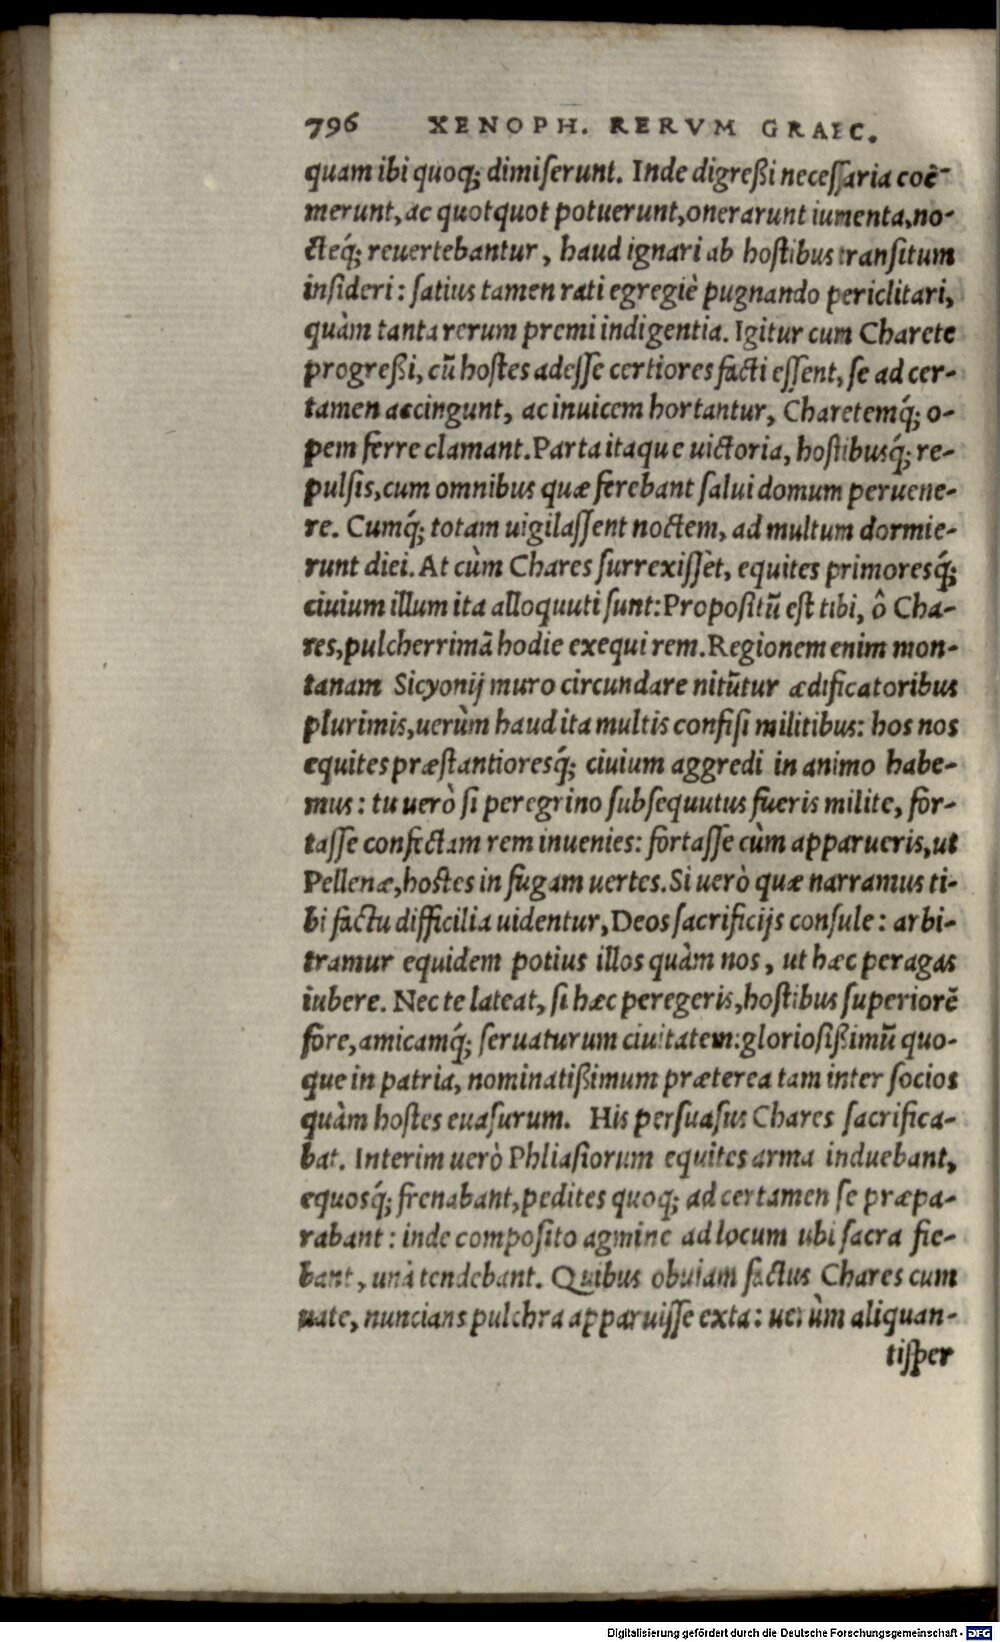 796 XENOPH. RERVM GRAEC.
quam ibi quoq; dimiserunt. Inde digreßi necessaria coë-
merunt, ac quotquot potuerunt, onerarunt iumenta, no-
cteq́; reuertebantur, haud ignari ab hostibus transitum
insideri: satius tamen rati egregiè pugnando periclitari,
quàm tanta rerum premi indigentia. Igitur cum Charete
progreßi, cũ hostes adesse certiores facti essent, se ad cer-
tamen accingunt, ac inuicem hortantur, Charetemq́; o-
pem ferre clamant. Parta itaque uictoria, hostibusq́; re-
pulsis, cum omnibus quæ ferebant salui domum peruene-
re. Cumq́; totam uigilassent noctem, ad multum dormie-
runt diei. At cùm Chares surrexissèt, equites primoresq́;
ciuium illum ita alloquuti sunt: Propositũ est tibi, ô Cha-
res, pulcherrimã hodie exequi rem. Regionem enim mon-
tanam Sicyonij muro circundare nitũtur ædificatoribus
plurimis, uerùm haud ita multis confisi militibus: hos nos
equites præstantioresq́; ciuium aggredi in animo habe-
mus: tu uerò si peregrino subsequutus fueris milite, for-
tasse confectam rem inuenies: fortasse cùm apparueris, ut
Pellenæ, hostes in fugam uertes. Si uerò quæ narramus ti-
bi factu difficilia uidentur, Deos sacrificijs consule: arbi-
tramur equidem potius illos quàm nos, ut hæc peragas
iubere. Nec te lateat, si hæc peregeris, hostibus superiorẽ
fore, amicamq́; seruaturum ciuitatem: gloriosißimũ quo-
que in patria, nominatißimum præterea tam inter socios
quàm hostes euasurum. His persuasus Chares sacrifica-
bat. Interim uerò Phliasiorum equites arma induebant,
equosq́; frenabant, pedites quoq; ad certamen se præpa-
rabant: inde composito agmine ad locum ubi sacra fie-
bant, unà tendebant. Quibus obuiam factus Chares cum
uate, nuncians pulchra apparuisse exta: uerùm aliquan-
tisper
Digitalisierung gefördert durch die Deutsche Forschungsgemeinschaft - DFG